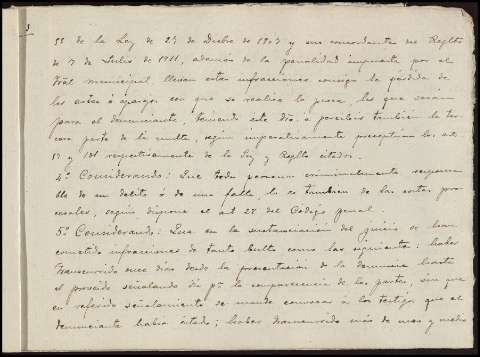 3
55 de la Ley de 27 de Dicbre de 1907 y sus concordantes del Reglto
de 7 de Julio de 1911, además de la penalidad impuesta por el
Tral municipal llevan estas infracciones consigo la pérdida de
las artes ó aparejos con que se realiza la pesca, los que serán
para el denunciante, teniendo este dro. á percibir también la ter-
cera parte de la multa, según imperativamente preceptúan los art.
57 y 101 respectivamente de la Ley y Reglto citados.
4º Considerando: Que toda persona criminalmente responsa-
ble de un delito ó de una falta, lo es también de las costas pro-
cesales, según dispone el art 28 del Código penal.
5º Considerando: Que en la sustanciación del juicio se han
cometido infracciones de tanto bulto como las siguientes: haber
transcurrido once días desde la presentación de la denuncia hasta
el proveído señalando día pª la comparecencia de las partes, sin que
en referido señalamiento se mande convocar á los testigos que el
denunciante había citado; haber transcurrido más de mes y medio